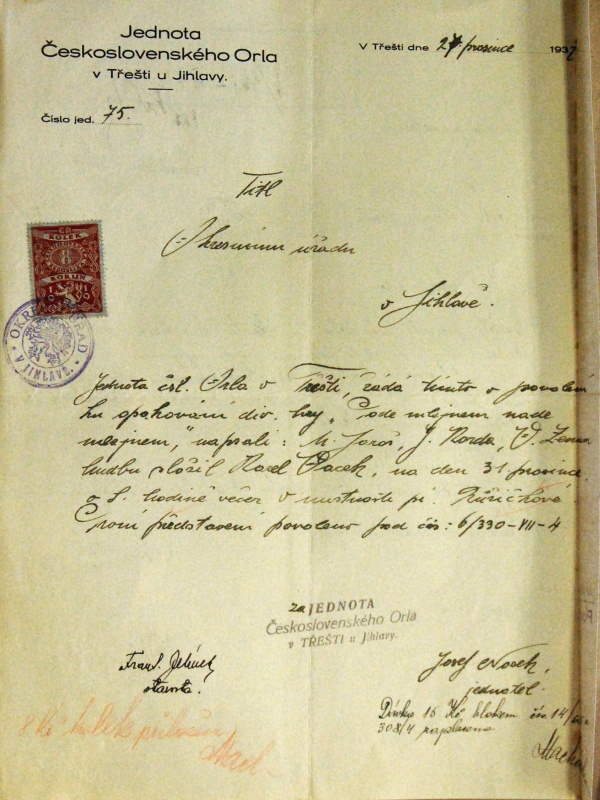 Jednota
Československého Orla
v Třešti u Jihlavy.
V Třešti dne 27. prosince 1932
Číslo jed. 75.
Titl
Okresnímu úřadu
v Jihlavě.
KOLEK
8
KORUN
OKRESNÍ ÚŘAD
V JIHLAVĚ.
Jednota čsl. Orla v Třešti, žádá tímto o povolení
ku opakování div. hry „Pode mlejnem nade
mlejnem", napsali: M. Jaroš, J. Korda,
hudbu složil Karel Vacek, na den 31 prosince
o 8. hodině večer v místnosti pí. Růžičkové.
První představení povoleno pod čís: 6/330-VII-4
za JEDNOTA
Československého Orla
v TŘEŠTI u Jihlavy.
Frant. Jelínek
starosta.
Josef Nosek,
jednatel.
8 Kč kolek přiložen
Dávka 16 Kč blokem čís 14/
308/4 zaplacena